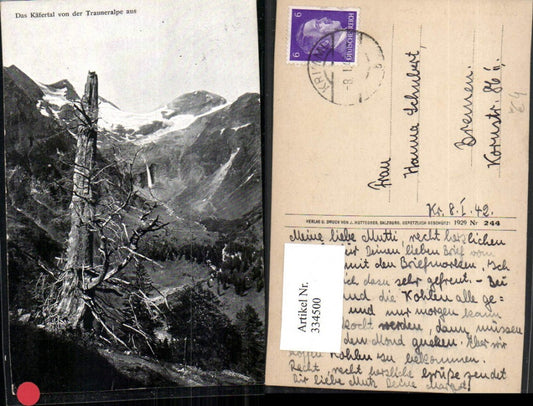 Das Käfertal von der Trauneralpe aus
6 DEUTSCHES REICH 6
8.1.
Frau
Hanna Schubert,
Bremen.
Kornstr. 86
Kr. 8.I.42.
VERLAG U. DRUCK VON J. HUTTEGGER, SALZBURG. GESETZLICH GESCHÜTZT! 1929 Nr. 244
Meine liebe Mutti, recht herzlichen
für Deinen lieben Brief vom
mit den Briefmarken. Ich
ich dazu sehr gefreut. – Bei
und die Kohlen alle ge=
und nur morgen kann
kocht werden, dann müssen
den Mond gucken. Aber wir
hoffen Kohlen zu bekommen.
Recht, recht herzliche Grüße sendet
Dir liebe Mutti Deine
Artikel Nr.
334500